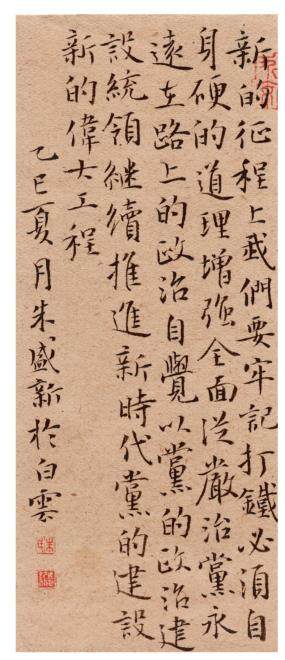 新的征程上我們要牢記打鐵必須自
身硬的道理增強全面從嚴治黨永
遠在路上的政治自覺以黨的政治建
設統領繼續推進新時代黨的建設
新的偉大工程
乙巳夏月朱盛新於白雲